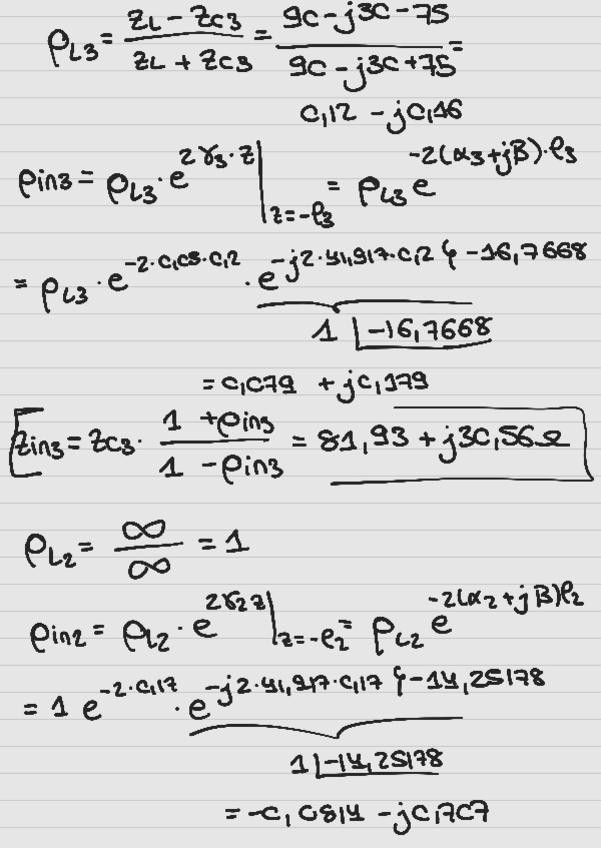 ρL3 = (ZL - ZC3)/(ZL + ZC3) = (90 - j30 - 75)/(90 - j30 + 75) =
0,12 - j0,16
ρin3 = ρL3 · e^(2γ3·z) |z=-ℓ3 = ρL3 e^(-2(α3+jβ)·ℓ3)
= ρL3 · e^(-2·0,05·0,2) · e^(-j2·41,917·0,2) { -16,7668
1 ∠-16,7668
= 0,079 + j0,179
[Zin3 = ZC3 · (1 + ρin3)/(1 - ρin3) = 81,93 + j30,56 Ω
ρL2 = ∞/∞ = 1
ρin2 = ρL2 · e^(2γ2z) |z=-ℓ2 = ρL2 e^(-2(α2+jβ)ℓ2)
= 1 e^(-2·0,17) · e^(-j2·41,917·0,17) { -14,25178
1 ∠-14,25178
= -0,0814 - j0,707